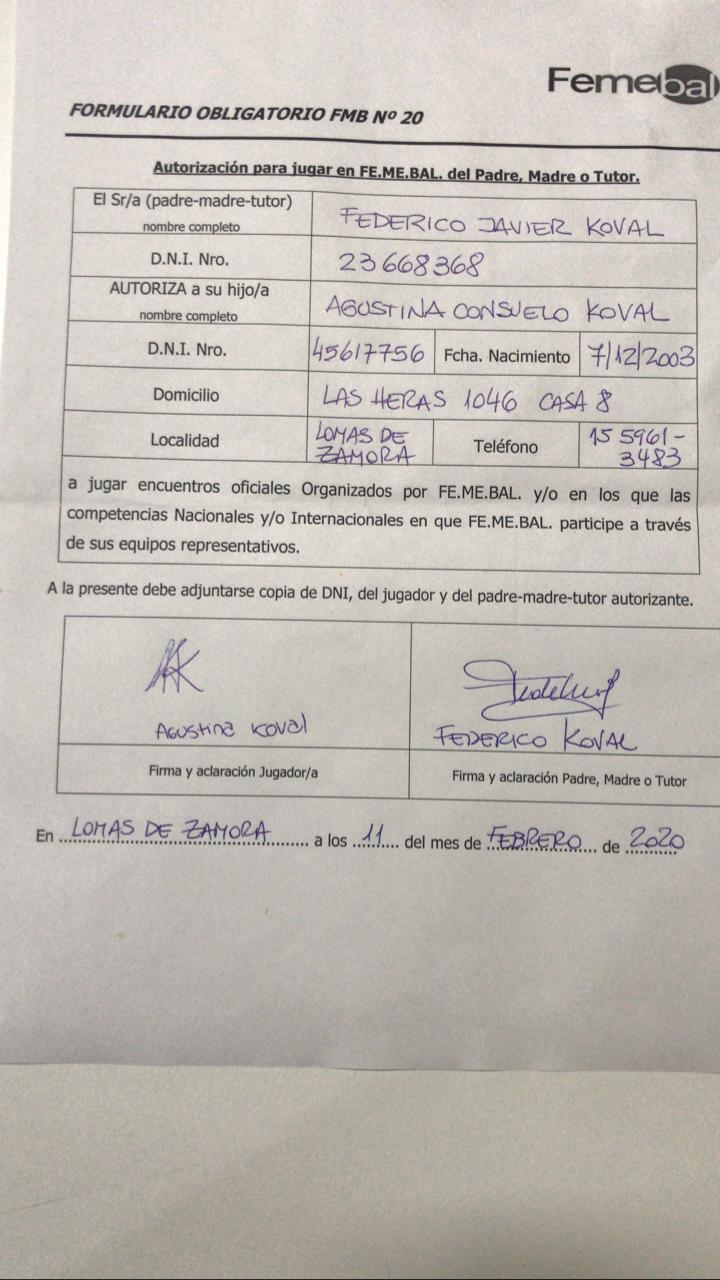 Femebal
FORMULARIO OBLIGATORIO FMB Nº 20
Autorización para jugar en FE.ME.BAL. del Padre, Madre o Tutor.
El Sr/a (padre-madre-tutor)
nombre completo
FEDERICO JAVIER KOVAL
D.N.I. Nro.
23668368
AUTORIZA a su hijo/a
nombre completo
AGUSTINA CONSUELO KOVAL
D.N.I. Nro.
45617756
Fcha. Nacimiento
7/12/2003
Domicilio
LAS HERAS 1046 CASA 8
Localidad
LOMAS DE
ZAMORA
Teléfono
15 5961-
3483
a jugar encuentros oficiales Organizados por FE.ME.BAL. y/o en los que las
competencias Nacionales y/o Internacionales en que FE.ME.BAL. participe a través
de sus equipos representativos.
A la presente debe adjuntarse copia de DNI, del jugador y del padre-madre-tutor autorizante.
AGUSTINA KOVAL
FEDERICO KOVAL
Firma y aclaración Jugador/a
Firma y aclaración Padre, Madre o Tutor
En LOMAS DE ZAMORA a los 11 del mes de FEBRERO de 2020